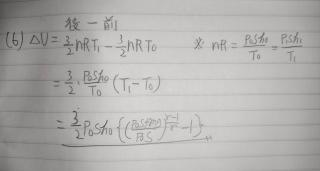 後 - 前
(6) ΔU = 3/2 nRT₁ - 3/2 nRT₀ ※ nR = P₀Sh₀/T₀ = P₁Sh₁/T₁
= 3/2 · P₀Sh₀/T₀ (T₁ - T₀)
= 3/2 P₀Sh₀ {( /P₀S)^(γ-1/γ) - 1}